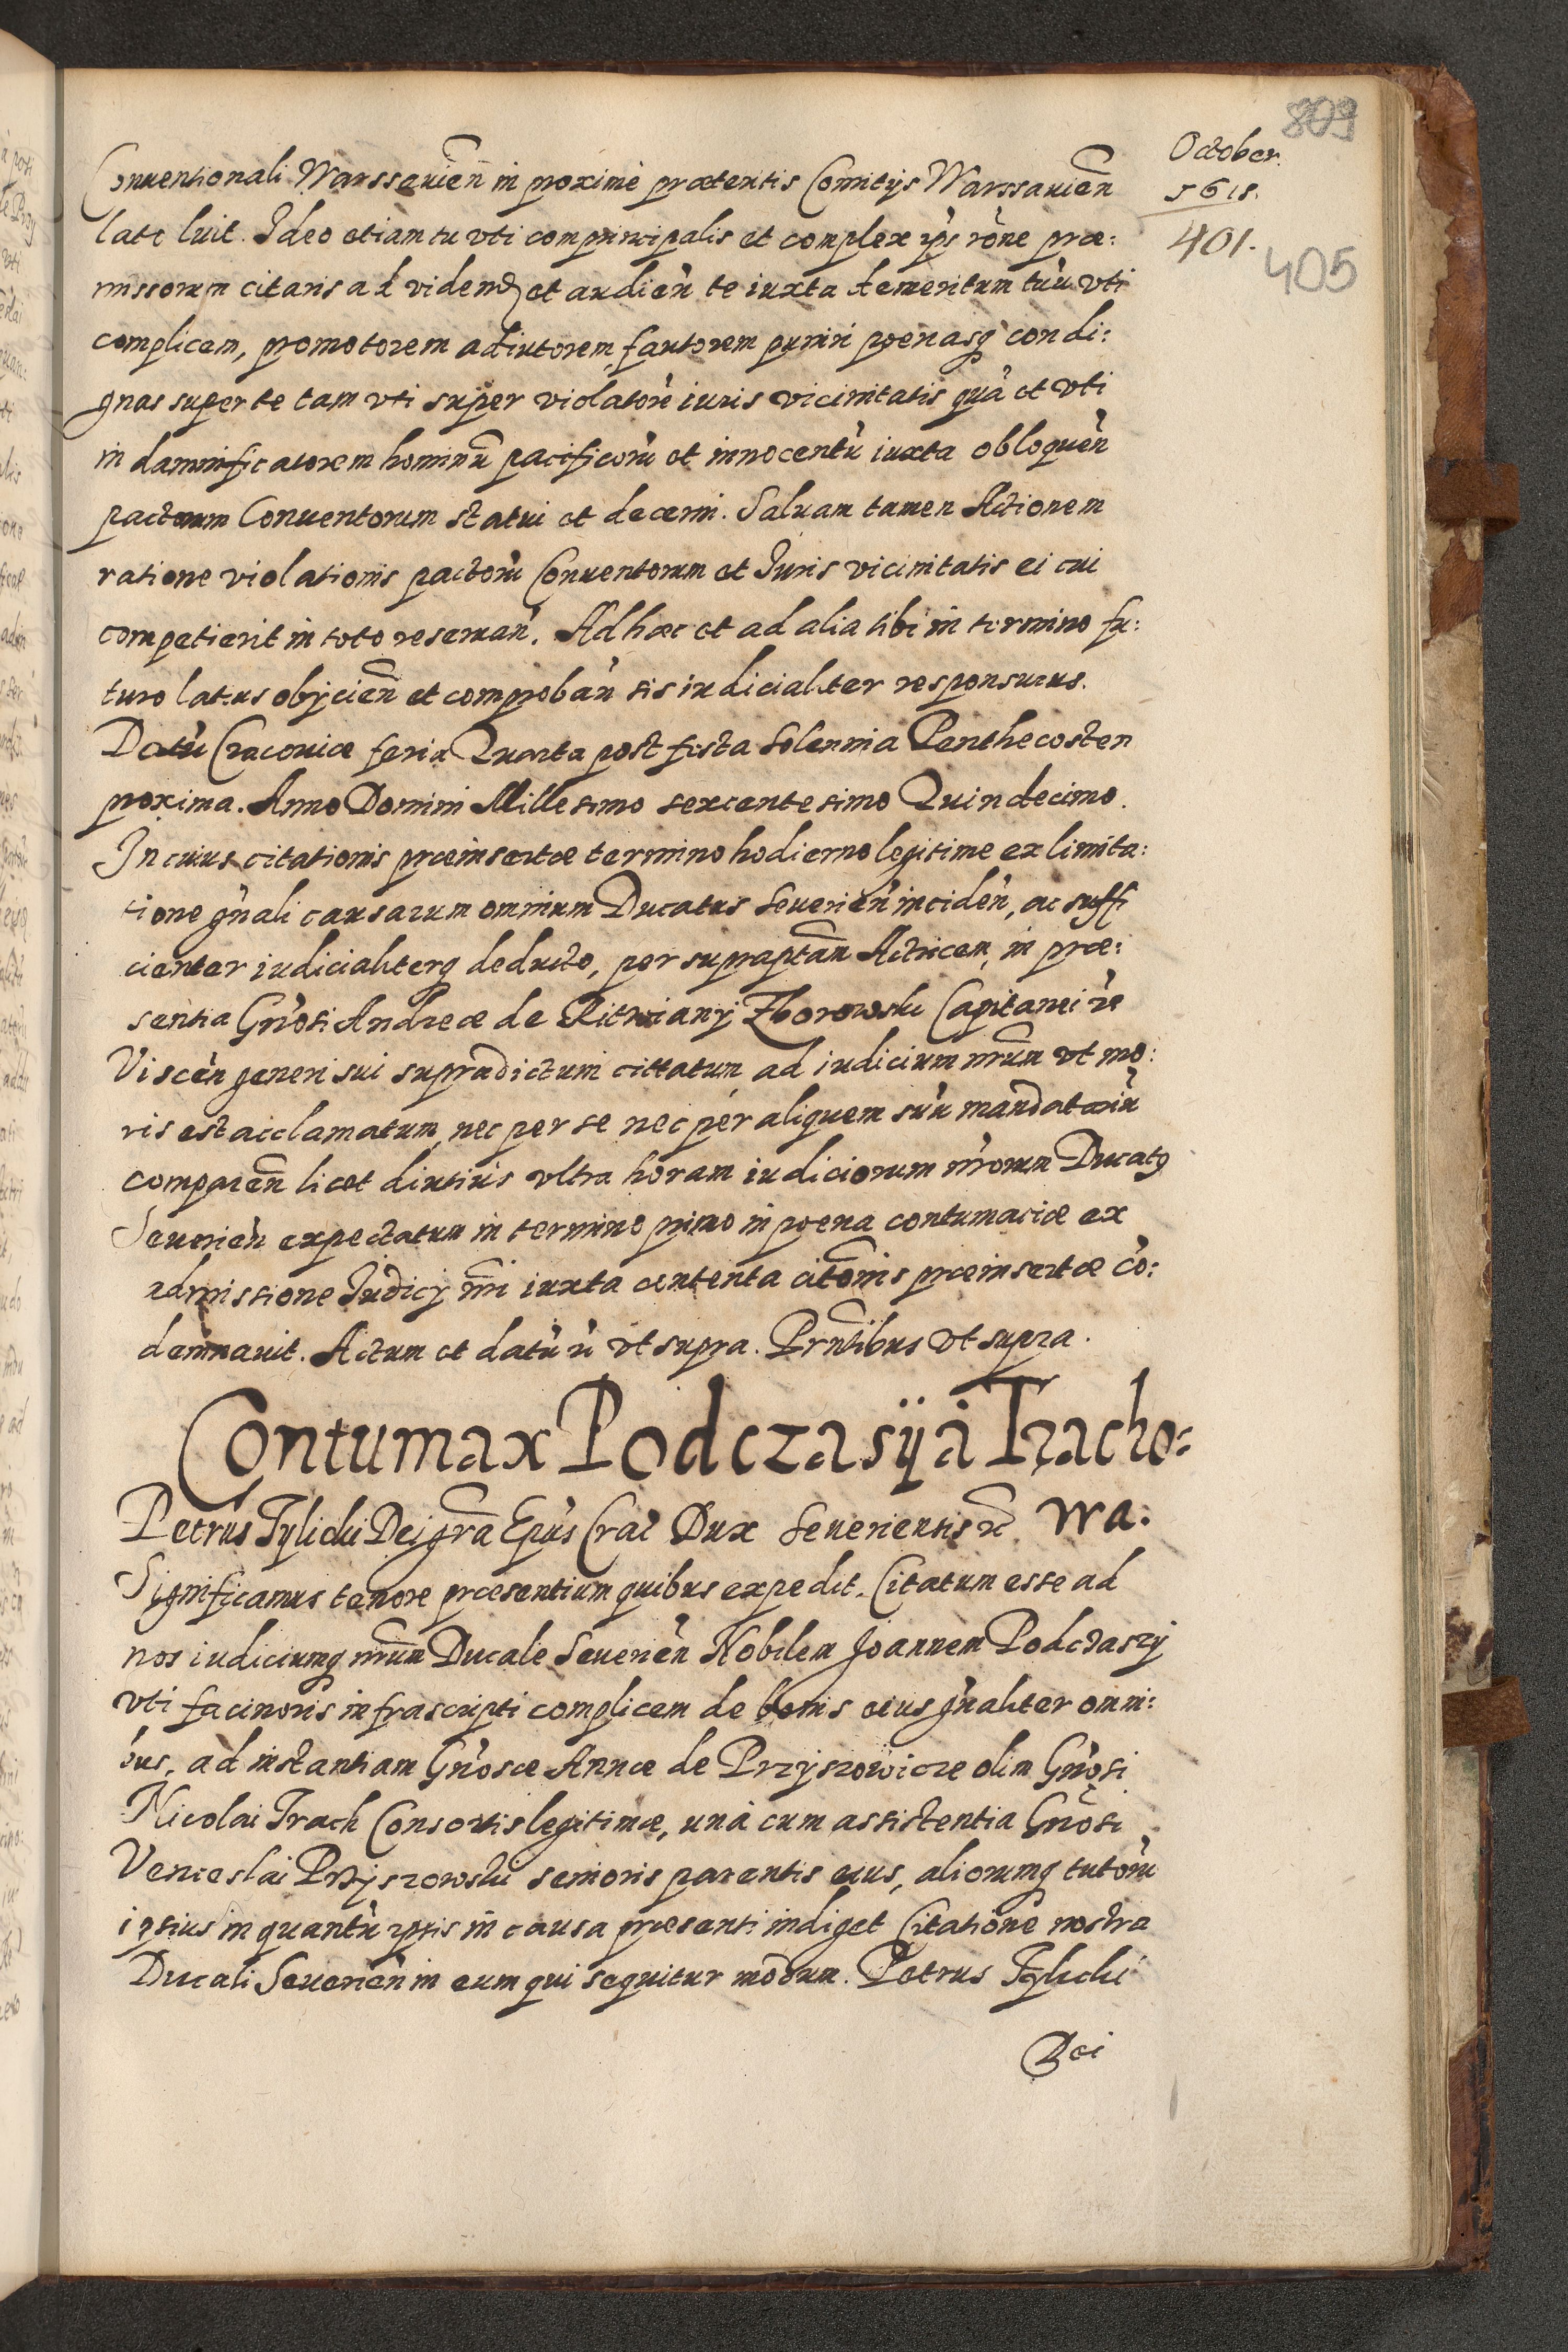 809
October.
1615.
401.
405
Conuentionali Warssauien̄ in proximè præteritis Comitijs Warssauien̄
late luit. Ideo etiam tu vti comprincipalis et complex ip̄s rōne præ:
missorum citaris ad videnđ et audien̄ te iuxta demeritum tuū vti
complicem, promotorem adiutorem, fautorem puniri poenasq̀ condi:
gnas super te tam vti super violatorē iuris vicinitatis quā et vti
in damnificatorem hominū pacificorū et innocentū iuxta obloquēn
pactorum Conuentorum statui et decerni. Saluam tamen Actionem
ratione violationis pactorū Conuentorum et Iuris vicinitatis ei cui
competierit in toto reseruan̄. Ad hæc et ad alia tibi in termino fu:
turo latius obijcien̄ et comproban̄ sis iudicialiter responsurus.
Datū Cracouiæ feria Quarta post festa solennia Penthecosten
proxima. Anno Domini Millesimo sexcentesimo Quindecimo.
In cuius citationis præinsertæ termino hodierno legitime ex limita:
tione gn̄ali causarum omnium Ducatus Seuerien̄ inciden̄, ac suffi
cienter iudicialiterq̀ deducto, per supraptam̄ Actricem, in præ:
sentia Gn̄osi Andreæ de Ritwiany Zborowski Capitanei
Viscen̄ generi sui supradictum cittatum ad iudicium nr̄um vt mo:
ris est acclamatum, nec per se nec pér aliquem suū mandatariū
comparen̄ licet diutius vltra horam iudiciorum nr̄orum Ducatq
Seuerien̄ expectatum in termino primo in poena contumaciæ ex
admissione Iudicij nr̄i iuxta contenta citōnis præinsertæ cō:
demnauit. Actum et datū ū vt supra. Prn̄tibus vt supra.
Contumax Podczasÿ à Tracho:
wa.
Petrus Tylicki Dei gr̄a Ep̄us Crac̄ Dux Seueriensis
Significamus tenore præsentium quibus expedit. Citatum esse ad
nos iudiciumq̀ nr̄um Ducale Seuerien̄ Nobilem Joannem Podczaszy
vti facinoris infrascripti complicem de bonis eius gn̄aliter omni:
bus, ad instantiam Gn̄osæ Annæ de Przyszowicze olim Gn̄osi
Nicolai Trach Consortis legitimæ, unà cum assistentia Gn̄osi
Venceslai Przyszowski senioris parentis eius, aliorumq̀ tutorū
ipsius in quantū ipsis in causa præsenti indiget Citatione nostra
Ducali Seuerien̄ in eum qui sequitur modum. Petrus Tylicki
Dei